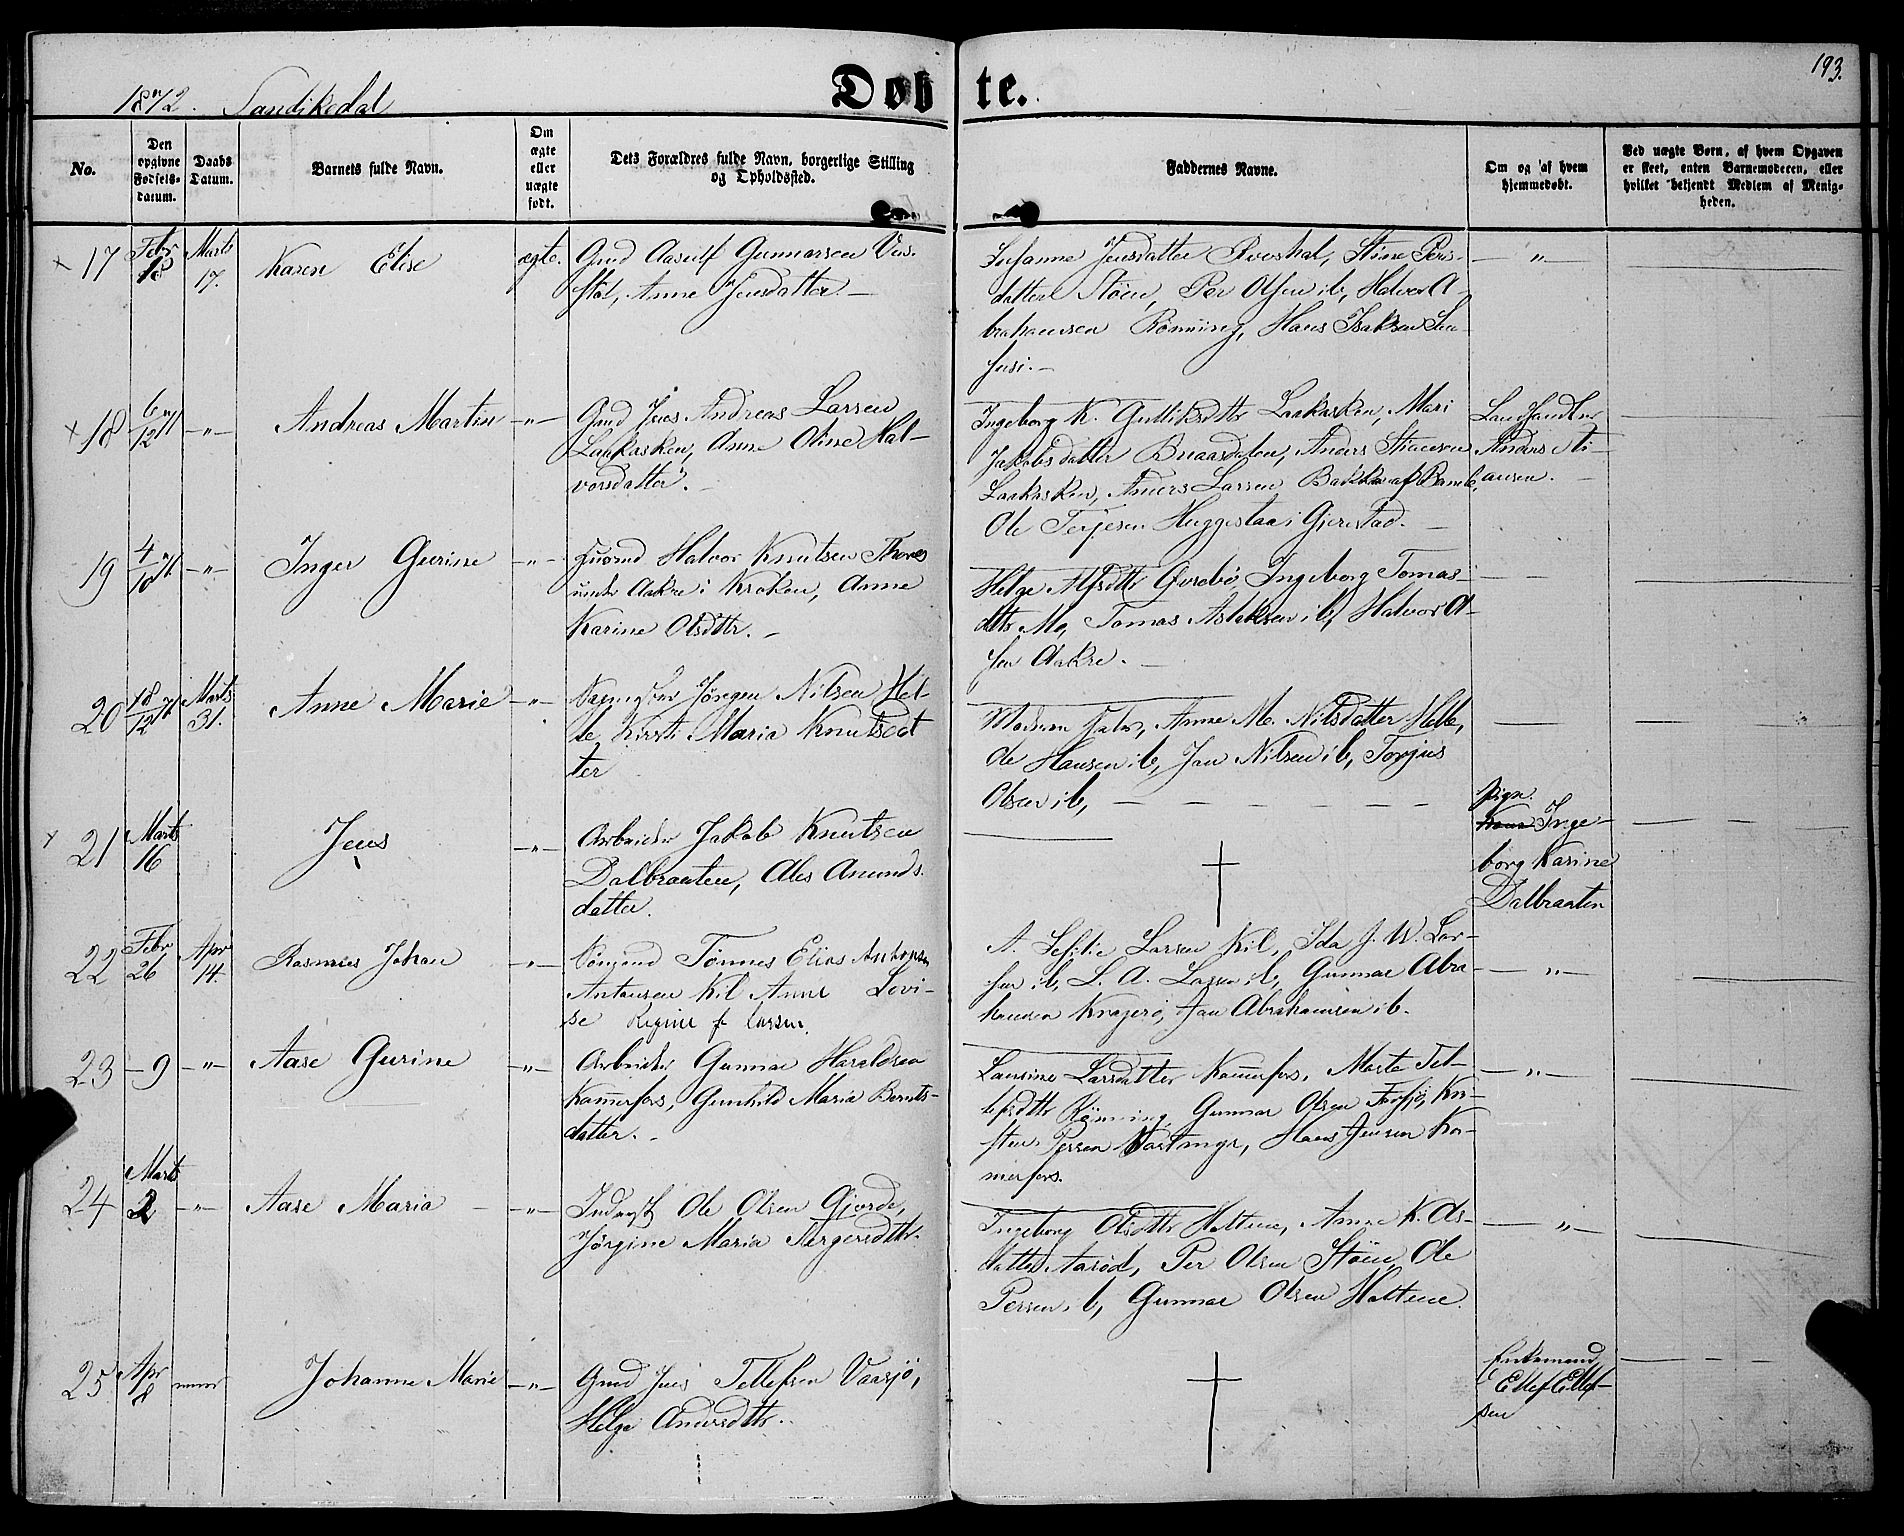 193.
1872. Sandikedal
Døbte.
No.
Den opgivne Fødselsdatum.
Daabs Datum.
Barnets fulde Navn.
Om ægte eller uægte født.
Dets Forældres fulde Navn, borgerlige Stilling og Opholdssted.
Faddernes Navne.
Om og af hvem hjemmedøbt.
Ved uægte Børn, af hvem Opgaven er skeet, enten Barnemoderen, eller hvilket bekjendt Medlem af Menigheden.
× 17
Febr 18
Marts 17.
Karen Elise
ægte.
Gmd Aasulf Gunnarsen
støl, Anne Jensdatter. —
Susanne Jensdatter Stine Pers-
datter Støen, Per Olsen ib, Halvor A-
brahamsen Rønning, Hans Isaksen
husi. —
— " —
× 18
6/12 71
— " —
Andreas Martin
— " —
Gmd Jens Andreas Larsen
Laukasken, Anne Oline Hal-
vorsdatter. —
Ingeborg K. Gulliksdtr Laukasken, Mari
Jakobsdatter Braasdalen, Anders Stiansen
Laukasken, Anders Larsen Bakka af Bamle,
Ole Terjesen Huggestaa i Gjerestad. —
Landhandler
Anders Sti-
ansen.
19
4/10 71
— " —
Inger Gurine
— " —
Halvor Knutsen Thones
under Aakre i Kroken, Anne
Karine Olsdtr. —
Helge Alfsdtr Øvrebø, Ingeborg Tomas-
dtr Mo, Tomas Aslaksen ib, Halvor Ol-
sen Aakre. —
20
18/12 71
Marts 31.
Anne Marie
— " —
Jørgen Nilsen Hel-
le, Kirsti Maria Knutsdat
ter
Moderen Anne M. Nilsdatter Helle,
Ole Hansen ib, Jan Nilsen ib, Torjus
Olsen ib,
× 21
Marts 16
Jens
— " —
Arbeider Jakob Knutsen
Dalbraaten, Ales Amunds-
datter.
†
Pige
Inge-
borg Karine
Dalbraaten
22
Febr 26
Apr 14.
Rasmus Johan
— " —
Sømand Tønnes Elias Antonsen
Antonsen Kil Anne Lovi-
se Regine f. Larsen.
A. Larsen Kil, Ida J. W. Lar-
sen ib, L. A. Larsen ib, Gunnar Abra
hamsen Kragerø, Jan Abrahamsen ib.
— " —
23
— 9
— " —
Aase Gurine
— " —
Arbeider Gunnar Haraldsen
Kamerfos, Gunhild Maria Bernts-
datter. —
Laurine Larsdatter Kamerfos, Marte Tel-
lefsdtr Rønning, Gunnar Olsen Fossjø, Kri-
sten Persen Hans Jensen Ka-
merfos.
— " —
24
Marts 2
— " —
Aase Maria
— " —
Inderst Ole Olsen Gjerde,
Jørgine Maria Aslgersdtr.
Ingeborg Olsdtr Holtene, Anne K. Ols-
datter Aasød, Per Olsen Støen, Ole
Persen ib, Gunnar Olsen Holtene.
— " —
25
Apr 8
Johanne Marie
— " —
Gmd Jens Tellefsen Vaasjø,
Helge Andersdtr. —
†
Enkemand
Ellef Ellef-
sen